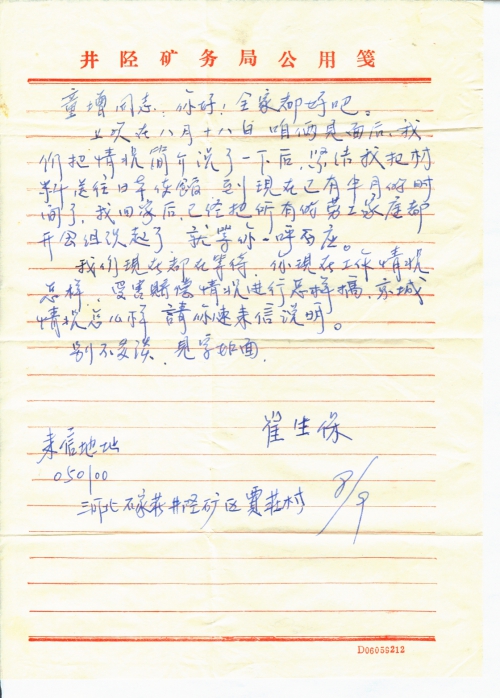 井陉矿务局公用笺
童增同志：你好！全家都好吧。
上次在八月十八日咱俩見面后，我
们把情况简介说了一下后，緊接我把材
料送往日本使館 到現在已有半月的时
间了，我回家后，已经把所有的劳工家庭都
开会组织起了 就等你一呼百应。
我们現在都在等待，你現在工作情况
怎样，受害賠償情况进行怎样搞，京城
情况怎么样 請你速来信说明。
别不多谈，見字如面
崔生保
来信地址
050100
河北石家莊井陉矿区賈莊村
8/9
D0605S212